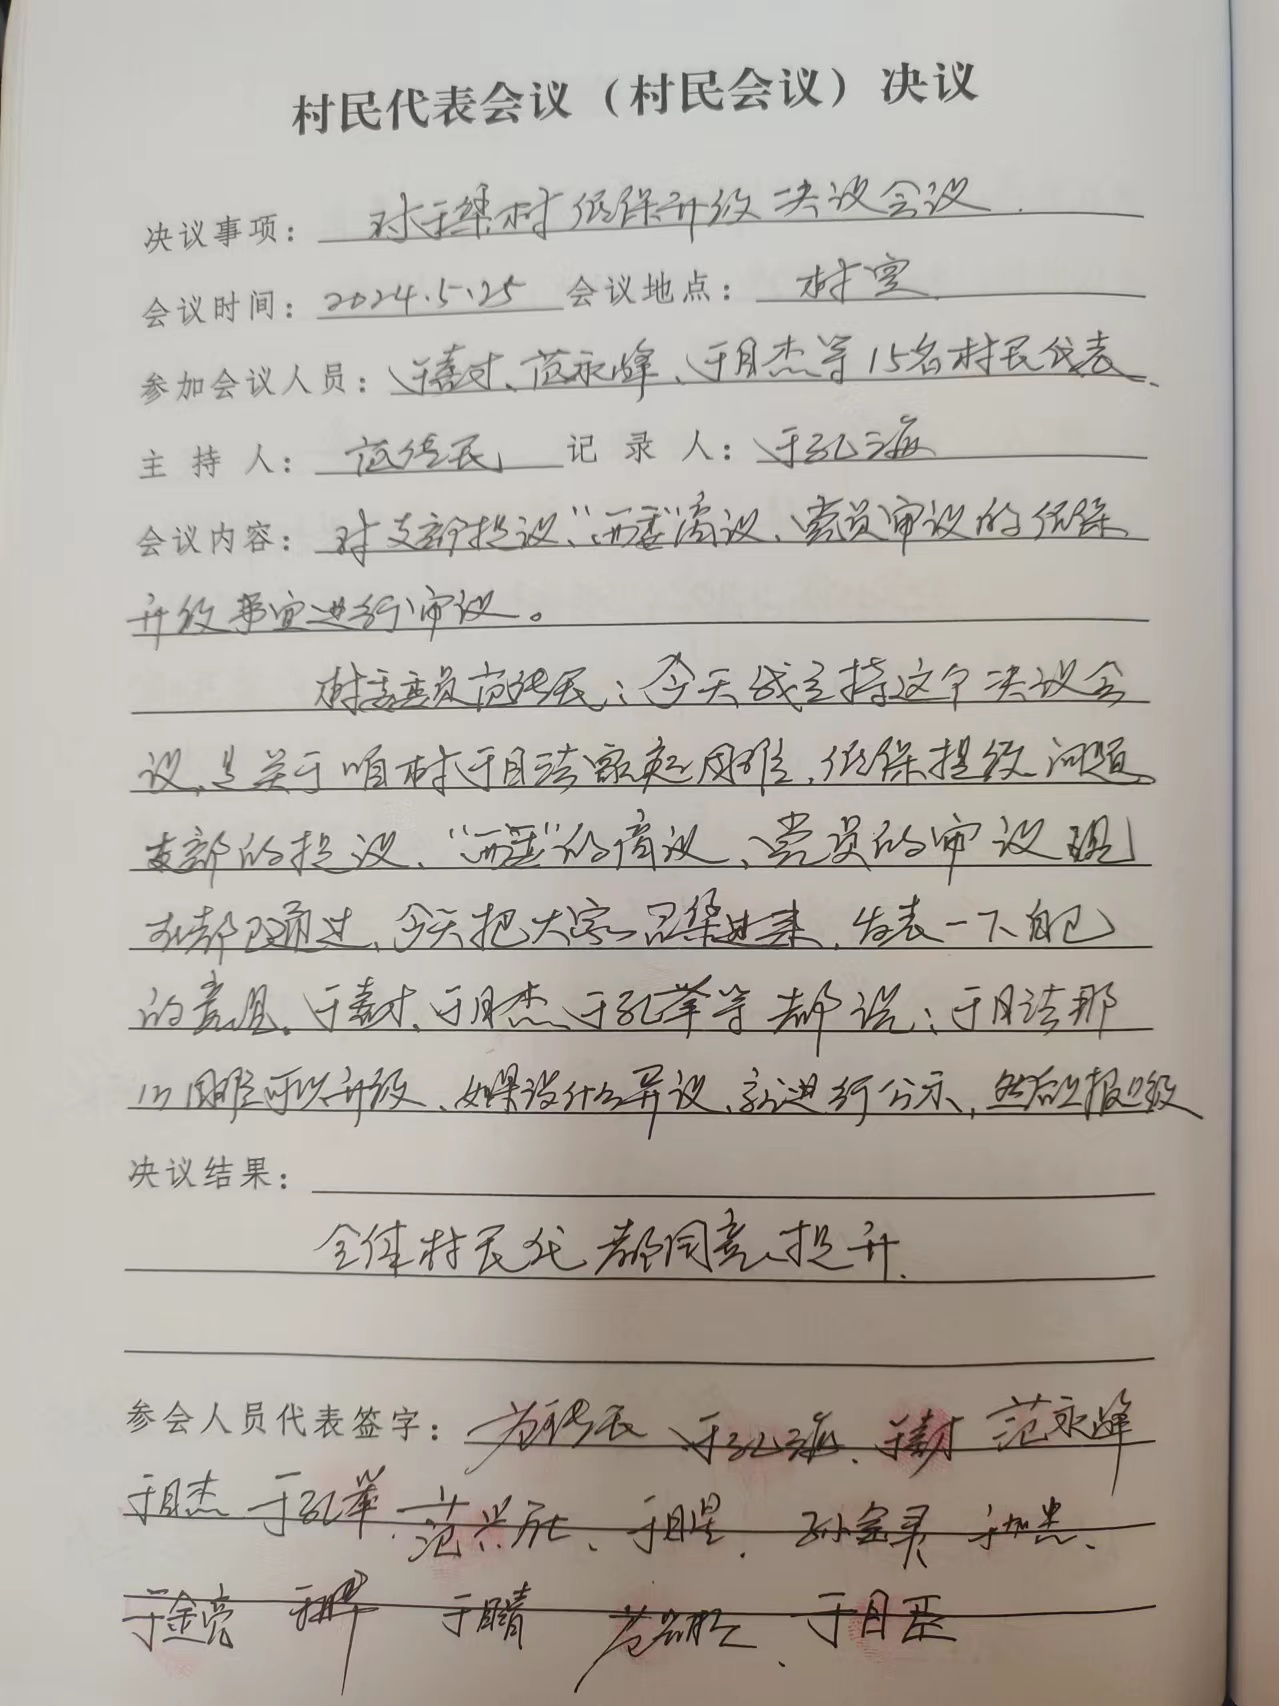 村民代表会议（村民会议）决议
决议事项： 对于某村低保升级决议会议.
会议时间： 2024.5.25 会议地点： 村室
参加会议人员： 于嘉才、范永峰、于月杰等15名村民代表.
主持人： 范传民 记录人： 于孔海
会议内容： 对支部提议、“两委”商议、党员审议的低保
升级事宜进行审议。
村委委员范传民：今天我主持这个决议会
议，是关于咱村于月法家庭困难，低保提级问题，
支部的提议、“两委”的商议、党员的审议现
在都已通过，今天把大家召集进来，发表一下自己
的意见。于嘉才、于月杰、于孔举等都说：于月法那
么困难可以升级、如果没什么异议，就进行公示，然后上报上级
决议结果：
全体村民代 都同意提升.
参会人员代表签字： 范传民 于孔海、于嘉才 范永峰
于月杰 于孔举 于月星. 孙金灵
于金亮 于晴 于月臣